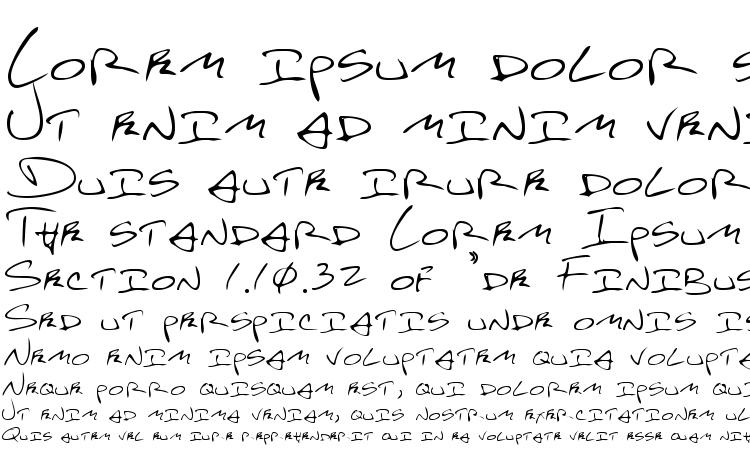 Lorem ipsum dolor s
Ut enim ad minim veni
Duis aute irure dolor
The standard Lorem Ipsum
Section 1.10.32 of "de Finibus
Sed ut perspiciatis unde omnis is
Nemo enim ipsam voluptatem quia volupta
Neque porro quisquam est, qui dolorem ipsum qui
Ut enim ad minima veniam, quis nostrum exercitationem ul
Quis autem vel eum iure reprehenderit qui in ea voluptate velit esse quam nih